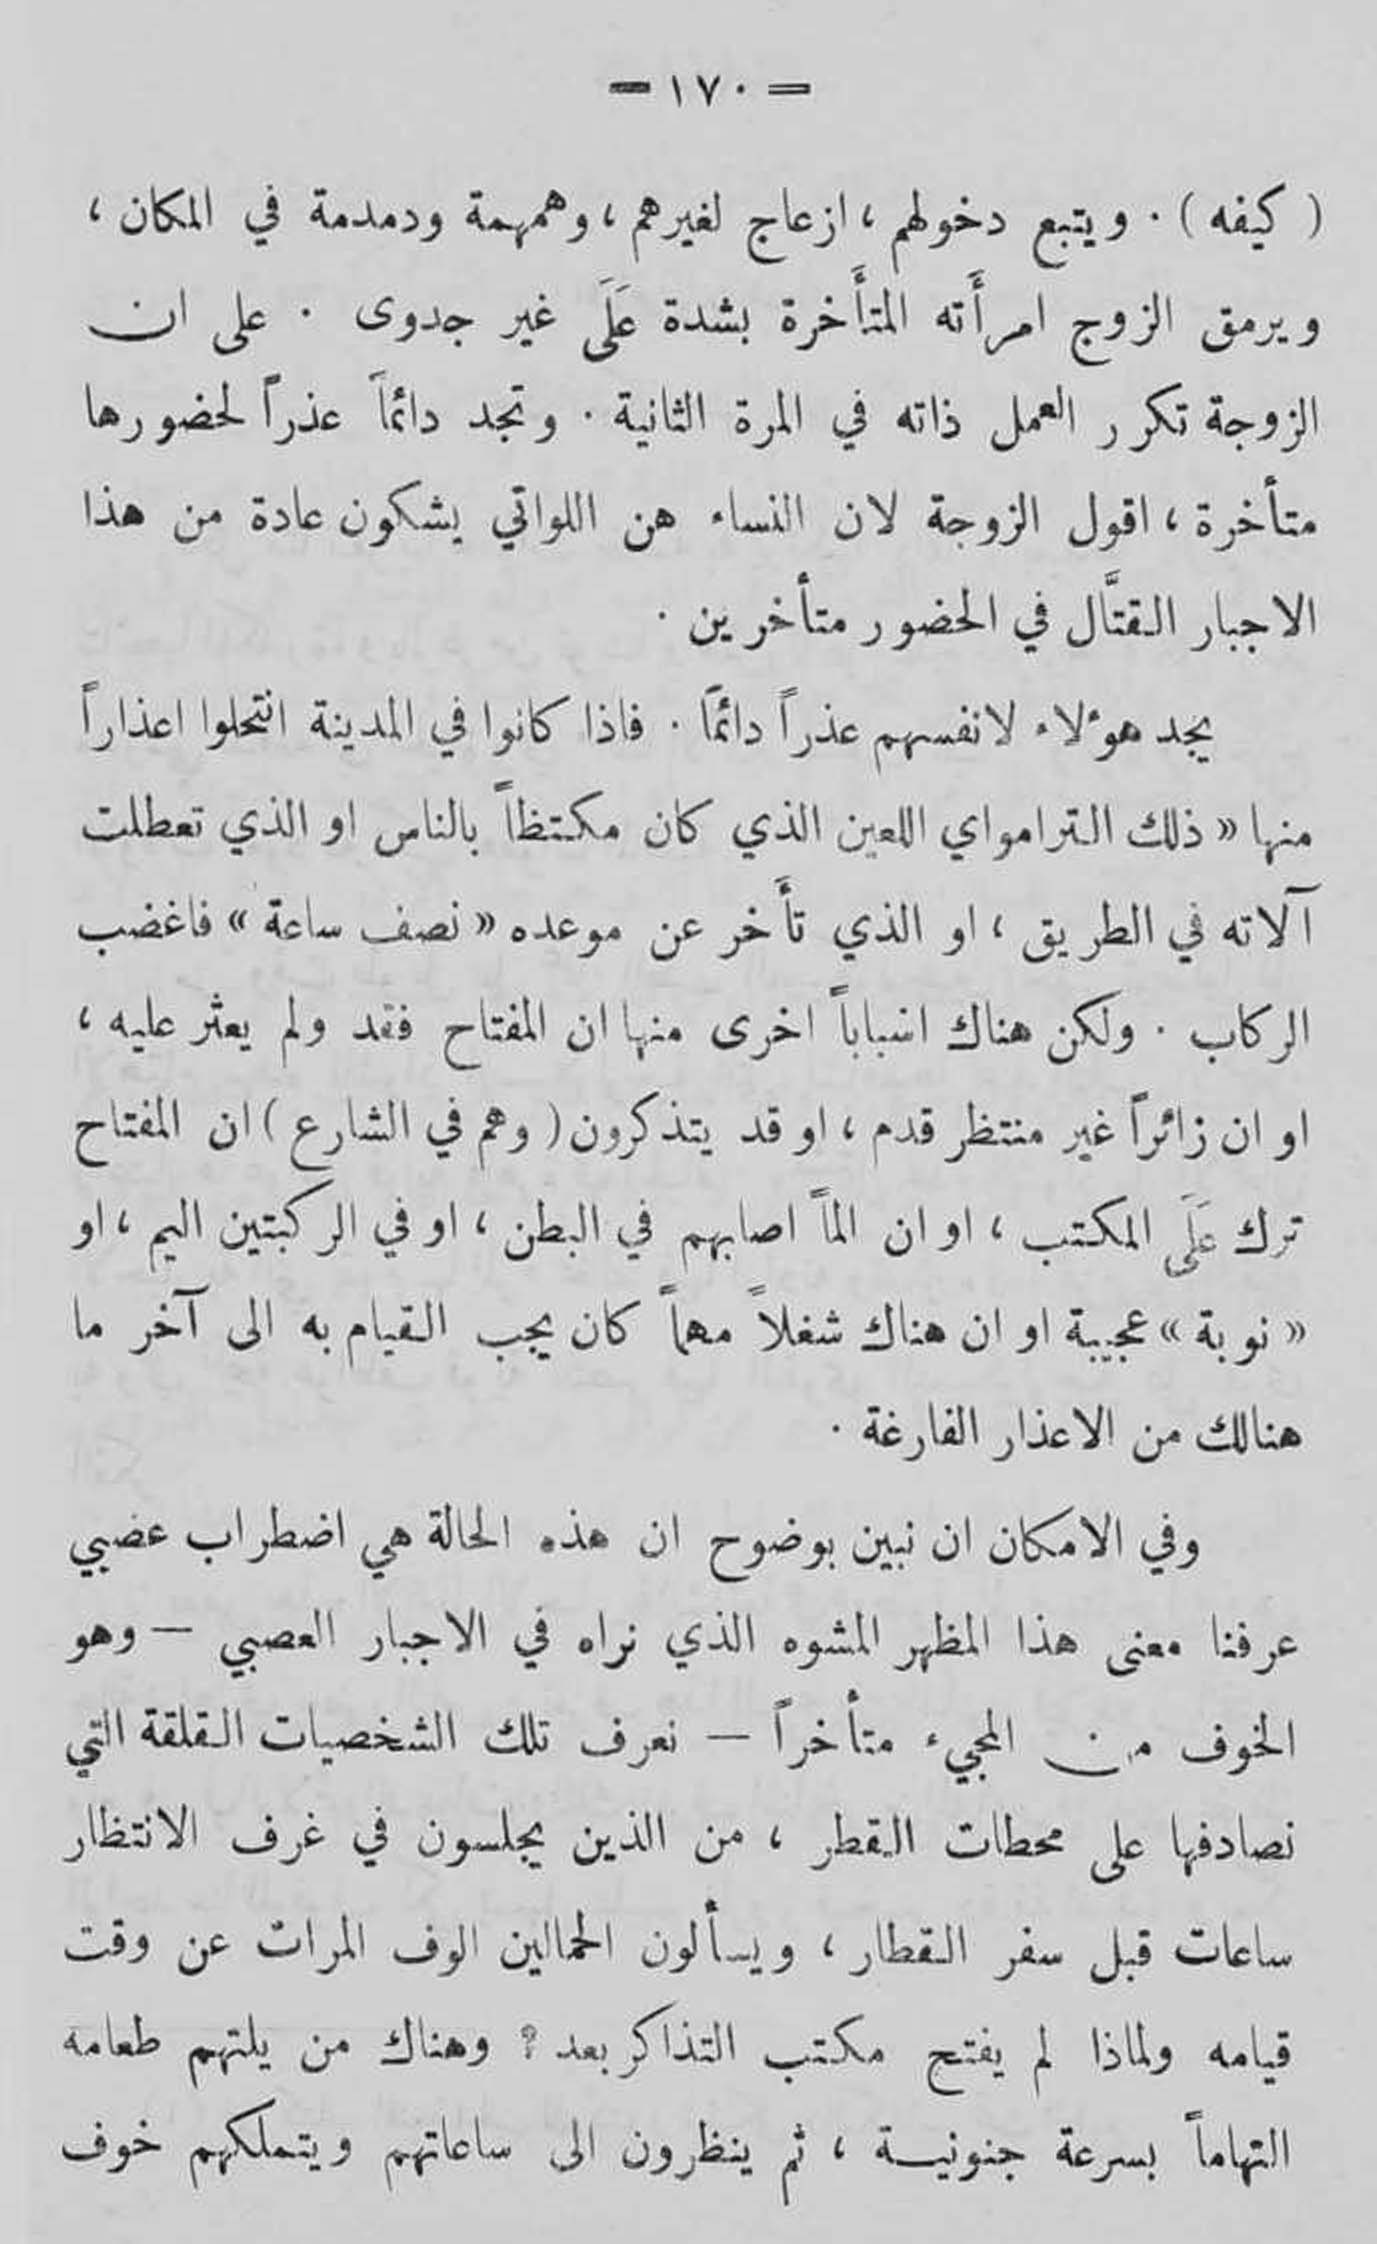 = ١٧٠ =
( كيفه ) . ويتبع دخولهم ، ازعاج لغيرهم ، وهمهمة ودمدمة في المكان ،
ويرمق الزوج امرأَته المتأَخرة بشدة عَلَى غير جدوى . على ان
الزوجة تكرر العمل ذاته في المرة الثانية . وتجد دائماً عذراً لحضورها
متأخرة ، اقول الزوجة لان النساء هن اللواتي يشكون عادة من هذا
الاجبار القتَّال في الحضور متأخرين .
يجد هوُلاء لانفسهم عذراً دائماً . فاذا كانوا في المدينة انتحلوا اعذاراً
منها « ذلك التراموي اللعين الذي كان مكتظاً بالناس او الذي تعطلت
آلاته في الطريق ، او الذي تأَخر عن موعده « نصف ساعة » فاغضب
الركاب . ولكن هناك اسباباً اخرى منها ان المفتاح فقد ولم يعثر عليه ،
او ان زائراً غير منتظر قدم ، او قد يتذكرون ( وهم في الشارع ) ان المفتاح
ترك عَلَى المكتب ، او ان الماً اصابهم في البطن ، او في الركبتين اليم ، او
« نوبة » عجيبة او ان هناك شغلاً مهماً كان يجب القيام به الى آخر ما
هنالك من الاعذار الفارغة .
وفي الامكان ان نبين بوضوح ان هذه الحالة هي اضطراب عصبي
عرفنا معنى هذا المظهر المشوه الذي نراه في الاجبار العصبي — وهو
الخوف من المجيء متأخراً — نعرف تلك الشخصيات القلقة التي
نصادفها على محطات القطر ، من الذين يجلسون في غرف الانتظار
ساعات قبل سفر القطار ، ويسألون الحمالين الوف المرات عن وقت
قيامه ولماذا لم يفتح مكتب التذاكر بعد ؟ وهناك من يلتهم طعامه
التهاماً بسرعة جنونية ، ثم ينظرون الى ساعاتهم ويتملكهم خوف